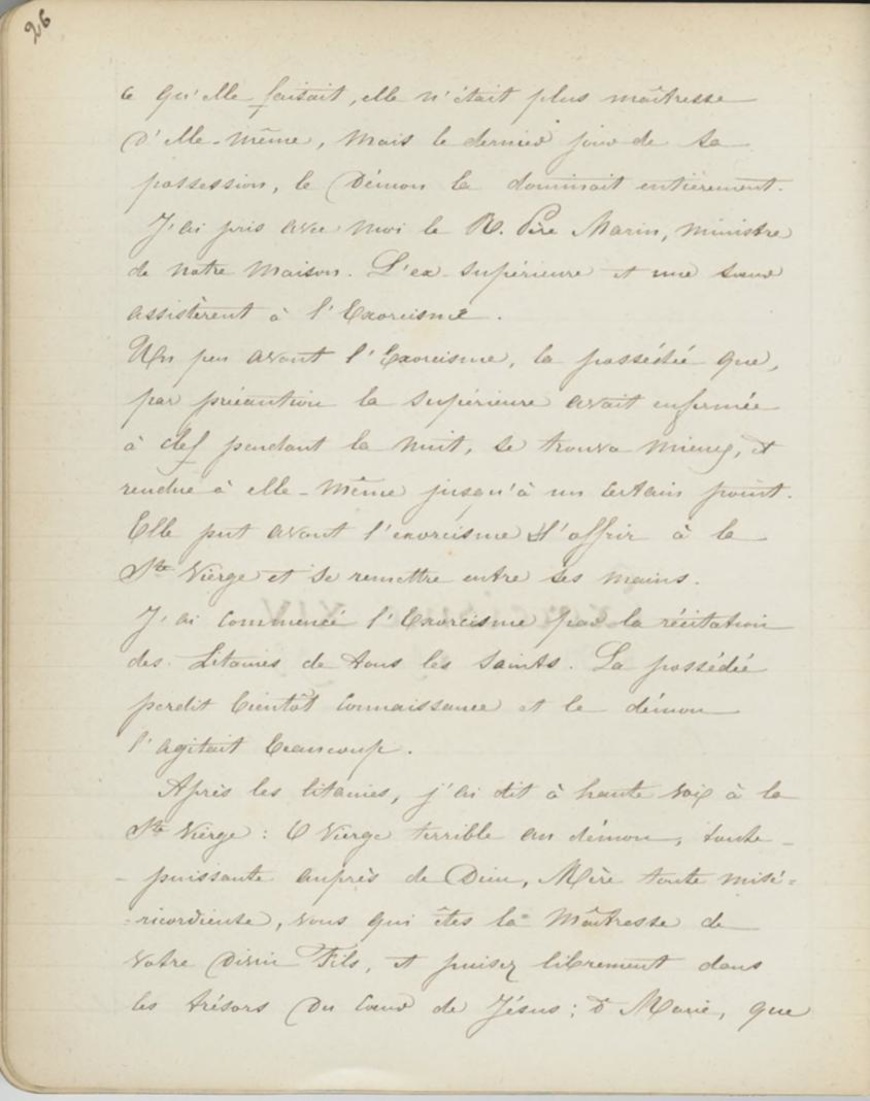 26
ce qu'elle faisait, elle n'était plus maîtresse
d'elle-même, mais le dernier jour de sa
possession, le Démon la dominait entièrement.
J'ai pris avec moi le R. Père Marin, ministre
de notre maison. L'ex-supérieure et une sœur
assistèrent à l'Exorcisme.
Un peu avant l'Exorcisme, la possédée que,
par précaution la supérieure avait enfermée
à clef pendant la nuit, se trouva mieux, et
rendue à elle-même jusqu'à un certain point.
Elle put avant l'exorcisme s'offrir à la
Ste Vierge et se remettre entre ses mains.
J'ai commencé l'Exorcisme par la récitation
des Litanies de tous les Saints. La possédée
perdit bientôt connaissance et le démon
l'agitait beaucoup.
Après les litanies, j'ai dit à haute voix à la
Ste Vierge : O Vierge terrible au démon, toute-
-puissante auprès de Dieu, Mère toute misé=
=ricordieuse, vous qui êtes la Maîtresse de
votre Divin Fils, et puisez librement dans
les trésors du Cœur de Jésus ; ô Marie, que